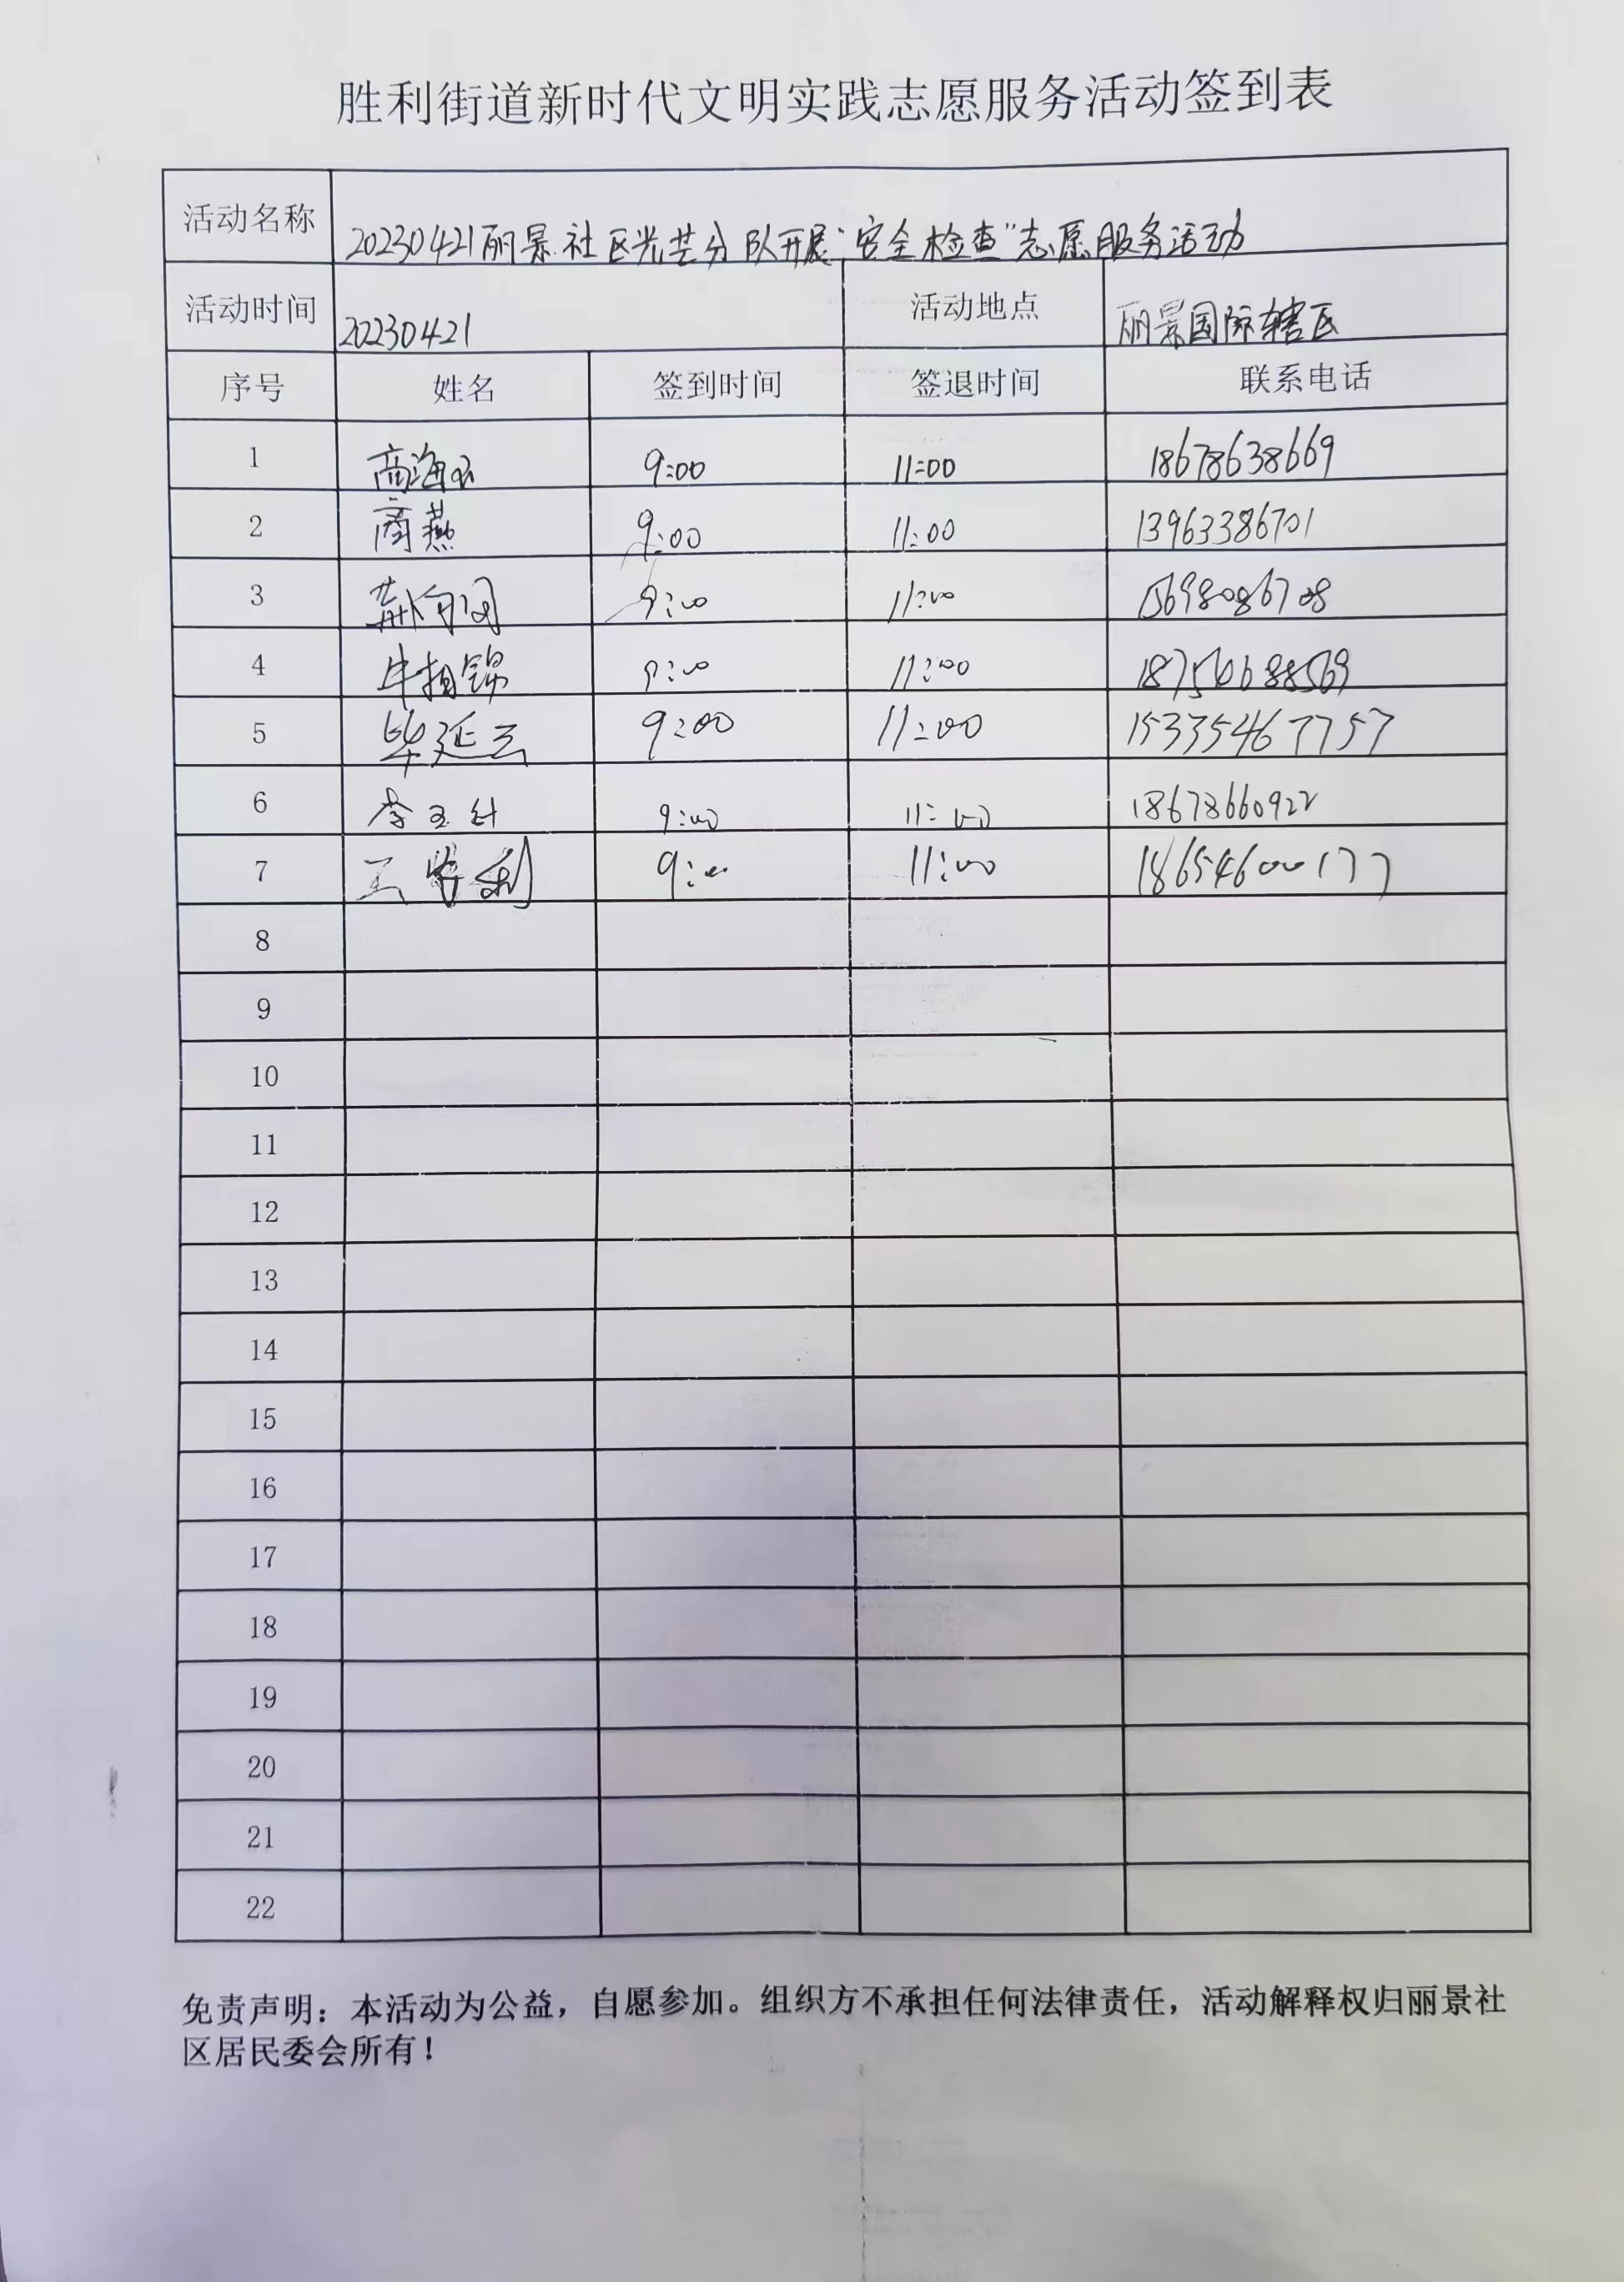 胜利街道新时代文明实践志愿服务活动签到表
活动名称 20230421丽景社区光芒分队开展“安全检查”志愿服务活动
活动时间 20230421 活动地点 丽景国际辖区
序号 姓名 签到时间 签退时间 联系电话
1 商海 9:00 11:00 18678638669
2 商燕 9:00 11:00 13963386701
3 9:00 11:00 15698086708
4 牛相锦 9:00 11:00
5 毕延云 9:00 11:00 15335467757
6 李玉 9:00 11:00 18678660922
7 王 利 9:00 11:00 18654600177
8
9
10
11
12
13
14
15
16
17
18
19
20
21
22
免责声明：本活动为公益，自愿参加。组织方不承担任何法律责任，活动解释权归丽景社
区居民委会所有！